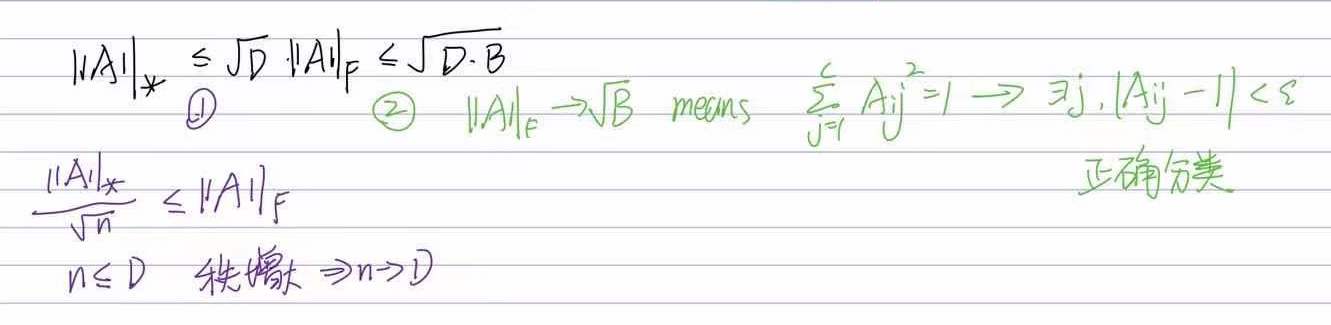 ||A||_* ≤ √D · ||A||_F ≤ √(D·B)
① ② ||A||_F → √B means ∑_{j=1}^{C} A_{ij}^2 = 1 → ∃j, |A_{ij} − 1| < ε
正确分类
||A||_* / √n ≤ ||A||_F
n ≤ D 秩增大 ⇒ n → D